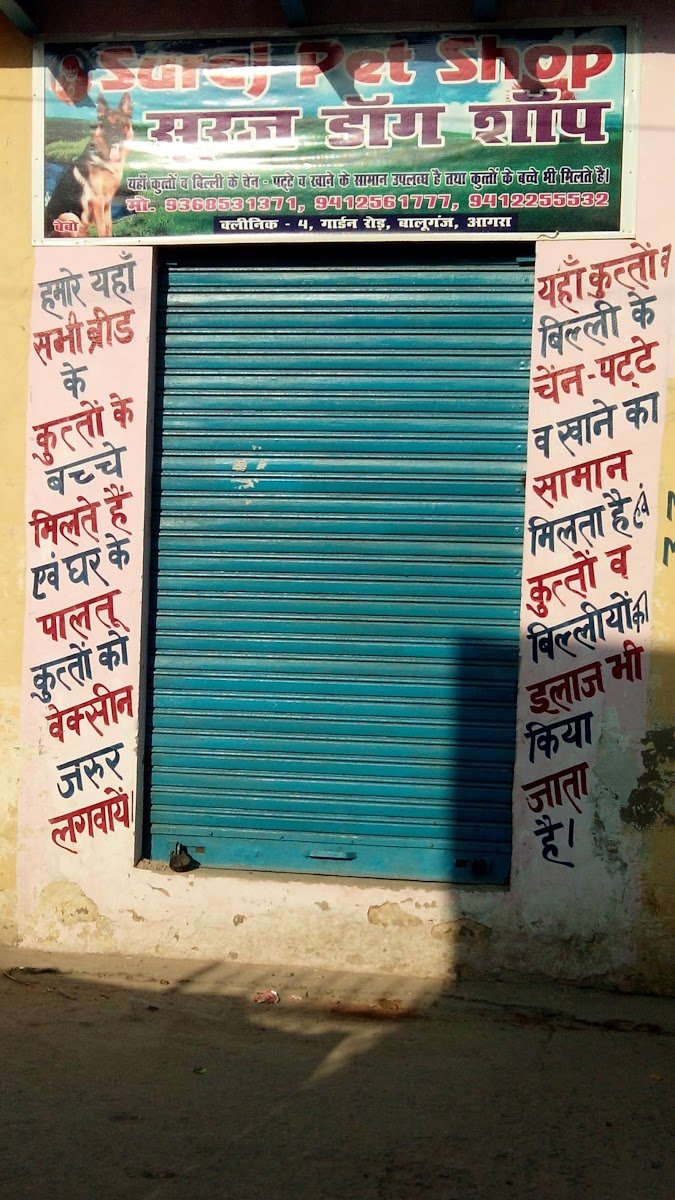 Suraj Pet Shop
सूरज डॉग शॉप
यहाँ कुत्तों व बिल्ली के चेंन - पट्टे व खाने के सामान उपलब्ध है तथा कुत्तों के बच्चे भी मिलते है।
मो. 9368531371, 9412561777, 9412255532
चेबो
क्लीनिक - 4, गार्डन रोड़, बालूगंज, आगरा
हमारे यहाँ
सभी ब्रीड
के
कुत्तों के
बच्चे
मिलते हैं
एवं घर के
पालतू
कुत्तों को
वेक्सीन
जरुर
लगवायें।
यहाँ कुत्तों व
बिल्ली के
चेंन-पट्टे
व खाने का
सामान
मिलता है एवं
कुत्तों व
बिल्लीयों की
इलाज भी
किया
जाता
है।